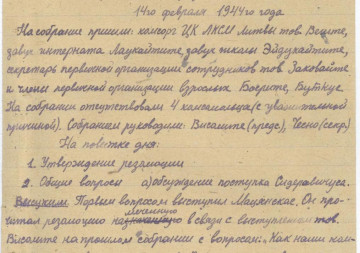 14го февраля 1944го года
На собрание пришли: комсорг ЦК ЛКСМ Литвы тов. Вещите,
завуч интерната Лаукайтите, завуч школы Эйдукайтите,
секретарь первичной организации сотрудников тов. Заковайте
и члены первичной организации взрослых Боерите, Буткуте.
На собрании отсутствовали 4 комсомольца (с уважительной
причиной). Собранием руководили: Висалите (предс), Чесно (секр)
На повестке дня:
1. Утверждение резолюции
2. Общие вопросы а) обсуждение поступка Сидеравичуса.
Выступили. Первым вопросом выступил Мацкинскас. Он про-
читал резолюцию в связи с выступлением тов.
Висалите на прошлом собрании с вопросом: Как наши ком-